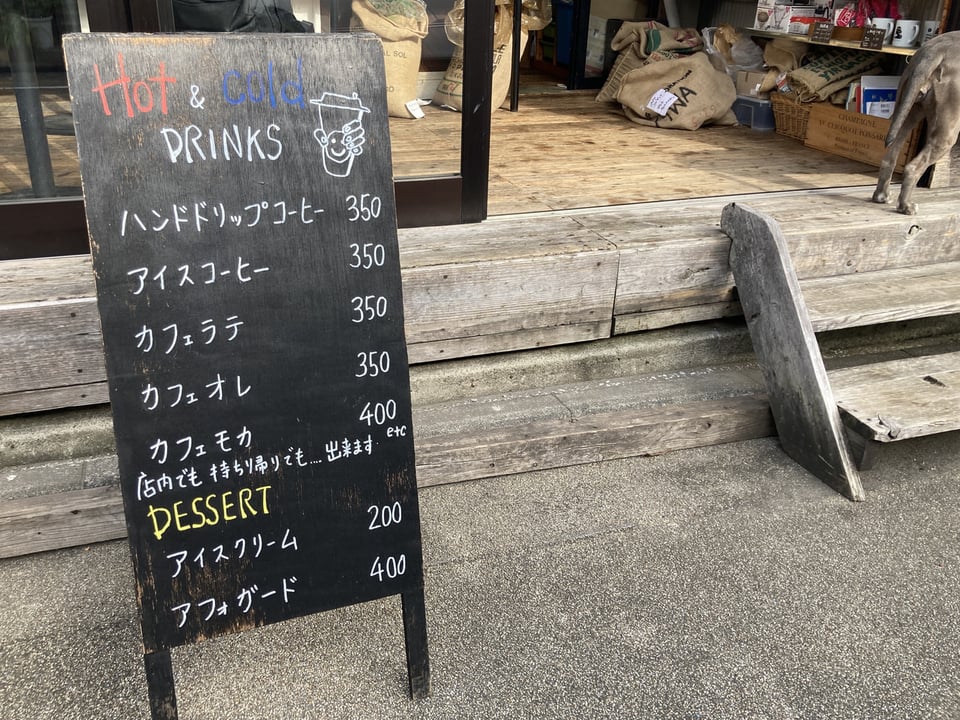 Hot & cold
DRINKS
ハンドドリップコーヒー 350
アイスコーヒー 350
カフェラテ 350
カフェオレ 350
カフェモカ 400
etc
店内でも 持ち帰りでも.... 出来ます
DESSERT
アイスクリーム 200
アフォガード 400